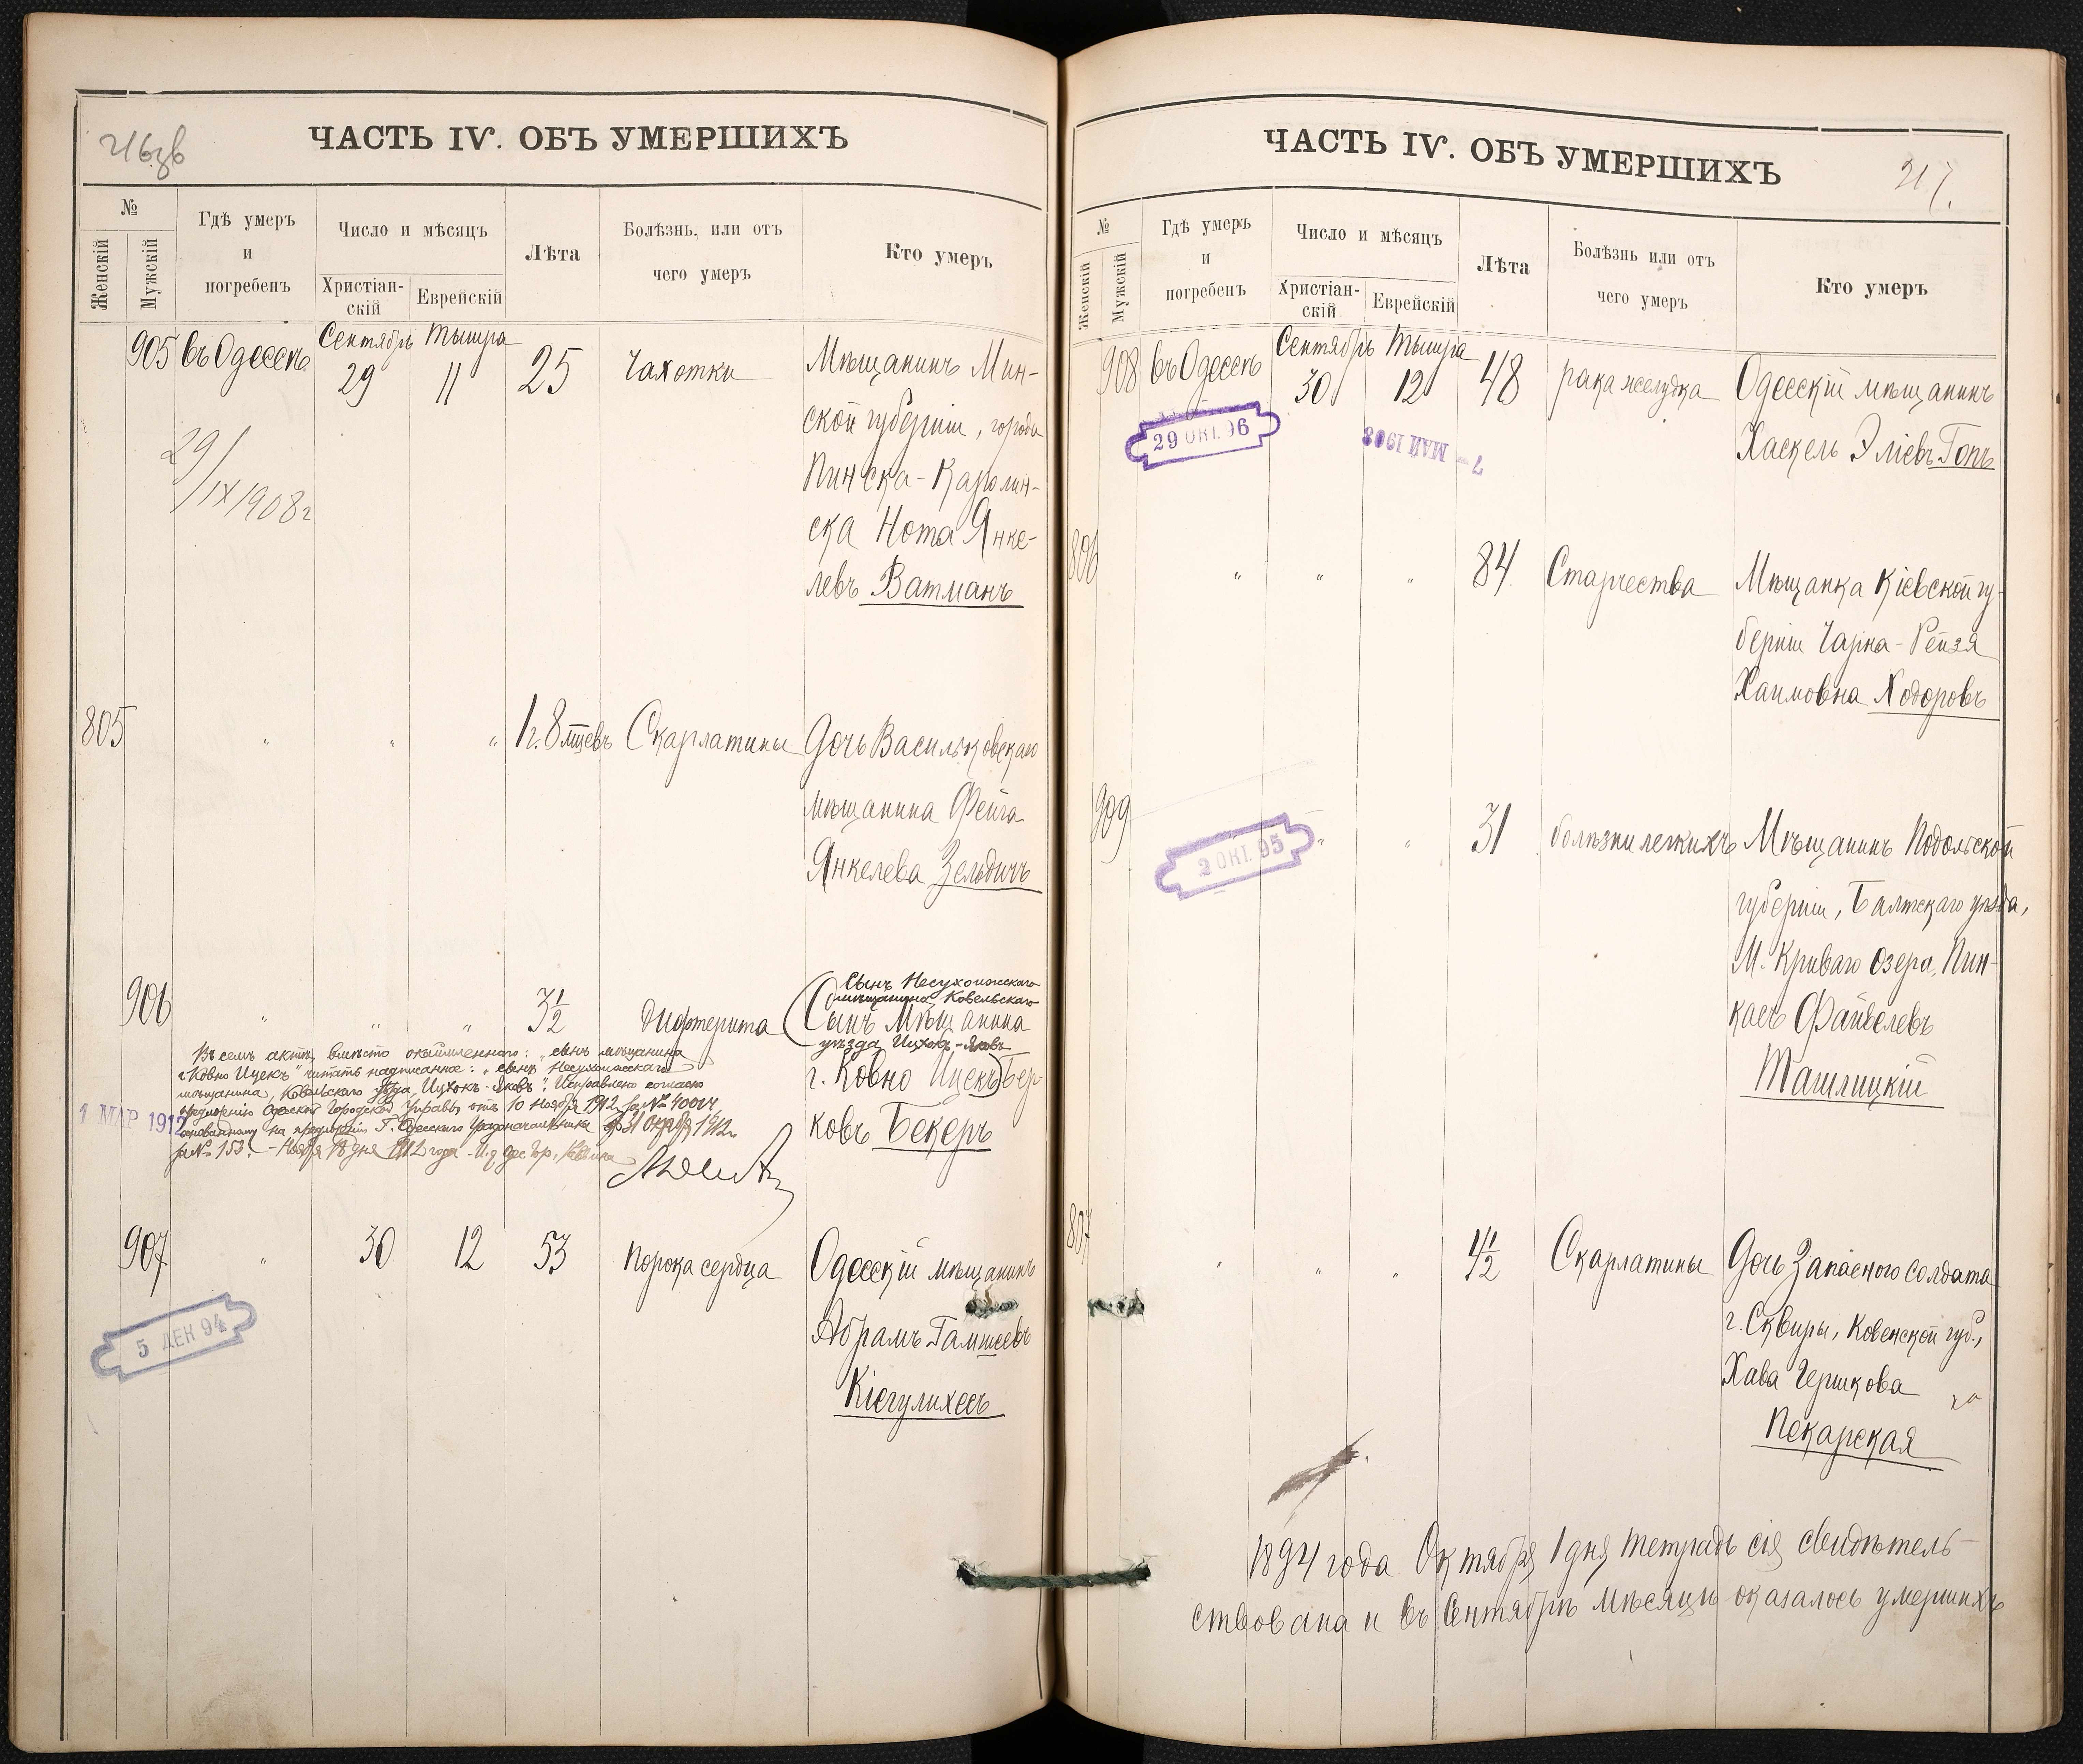 216 об
ЧАСТЬ IV. ОБЪ УМЕРШИХЪ
№
Женскій
Мужскій
Гдѣ умеръ
и
погребенъ
Число и мѣсяцъ
Христіан-
скій
Еврейскій
Лѣта
Болѣзнь, или отъ
чего умеръ
Кто умеръ
905 въ Одессѣ Сентябрь 29 Тышра 11 25 Чахотки Мѣщанинъ Мин-
ской губерніи, города
Пинска-Каролин-
ска Нота Янке-
левъ Ватманъ
29/IX 1908 г
805 " " " 1 г. 8 мцевъ Скарлатины Дочь Васильковскаго
мѣщанина Фейга
Янкелева Зельдичъ
906 " " " 3 1/2 Дифтерита
Сынъ Несухоижскаго
мѣщанина Ковельскаго
(Сынъ Мѣщанина
уѣзда Ицхокъ-Яковъ
г. Ковно Ицекъ) Бер-
ковъ Бекеръ
Въ семъ актѣ, вмѣсто окаймленнаго: "сынъ мѣщанина
г. Ковно Ицекъ" читать надписанное: "сынъ Несухоижскаго
мѣщанина, Ковельскаго уѣзда, Ицхокъ-Яковъ". Исправлено согласно
предложенію Одесской Городской Управы отъ 10 Ноября 1912 за № 40014
основанному на предложеніи Г. Одесскаго Градоначальника отъ 31 Октября 1912 г.
за № 153. - Ноября 18 дня 1912 года
1 МАР 1912
907 " 30 12 53 Порока сердца Одесскій мѣщанинъ
Абрамъ
Кіегулихесъ
5 ДЕК 94
217.
ЧАСТЬ IV. ОБЪ УМЕРШИХЪ
№
Женскій
Мужскій
Гдѣ умеръ
и
погребенъ
Число и мѣсяцъ
Христіан-
скій
Еврейскій
Лѣта
Болѣзнь или отъ
чего умеръ
Кто умеръ
908 въ Одессѣ Сентябрь 30 Тышра 12 48 рака желудка Одесскій мѣщанинъ
Хаскель Эліевъ Гопъ
29 ОКТ. 96
7 - МАЙ 1903
806 " " " 84 Старчества Мѣщанка Кіевской гу-
берніи Чарна-Рейзя
Хаимовна Ходоровъ
909 " " 31 болѣзни легкихъ Мѣщанинъ Подольской
губерніи, Балтскаго уѣзда,
М. Криваго Озера, Пин-
касъ Файвелевъ
Ташлицкій
2 ОКТ. 95
807 " " " 4 1/2 Скарлатины Дочь Запаснаго солдата
г. Сквиры, Ковенской губ.,
Хава Гершкова
Пекарская
1894 года Октября 1 дня тетрадь сія свидѣтель-
ствована и въ Сентябрѣ мѣсяцѣ оказалось умершихъ